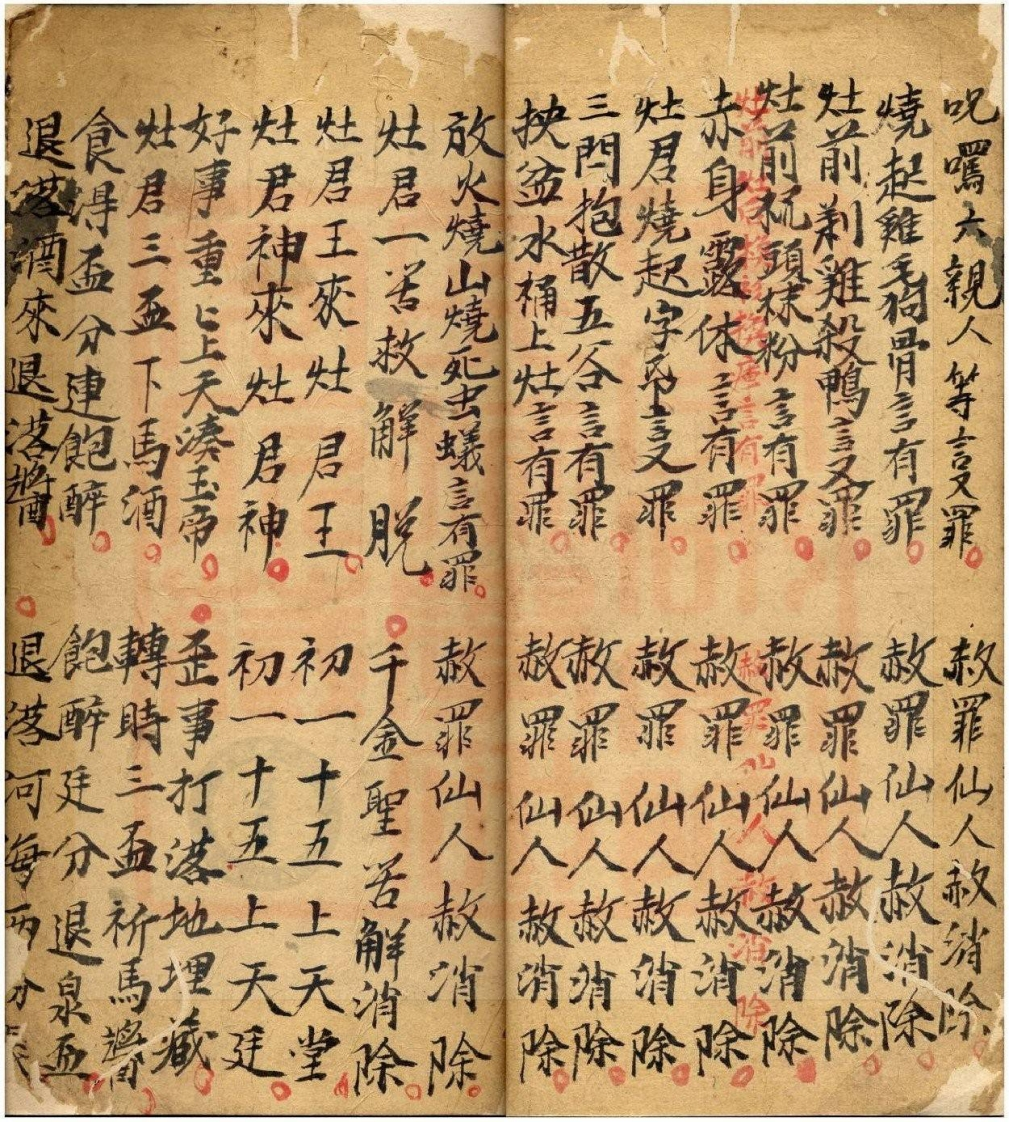 呪罵六親人等言又罪 赦罪仙人赦消除
燒起雞毛狗骨言有罪 赦罪仙人赦消除
灶前剎雞殺鴨言又罪 赦罪仙人赦消除
灶前梳頭抹粉言有罪 赦罪仙人赦消除
言有罪 赦罪仙人赦消除
赤身露体言有罪 赦罪仙人赦消除
灶君燒起字帋言又罪 赦罪仙人赦消除
三門抱散五谷言有罪 赦罪仙人赦消除
抰盆水桶上灶言有罪 赦罪仙人赦消除
放火燒山燒死虫蟻言有罪 赦罪仙人赦消除
灶君一苦救解脫 千金聖苦解消除
灶君王來灶君王 初一十五上天堂
灶君神來灶君神 初一十五上天廷
好事重上天湊玉帝 歪事打落地埋藏
灶君三盃下馬酒 轉時三盃祈馬醬
食得盃分連飽醉 飽醉廷分退泉盃
退落酒來退落醬 退落河海两分